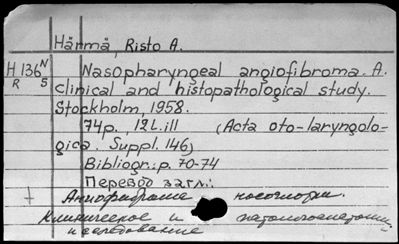 Härmä, Risto A.
H 136 N Nasopharyngeal angiofibroma. A.
R 5 clinical and histopathological study.
Stockholm, 1958.
74p., 12 L. ill (Acta oto-laryngolo-
gica. Suppl. 146)
Bibliogr.: p. 70-74
Перевод загл.:
Ангиофиброма носоглотки.
Клиническое и патологоанатомич.
исследование